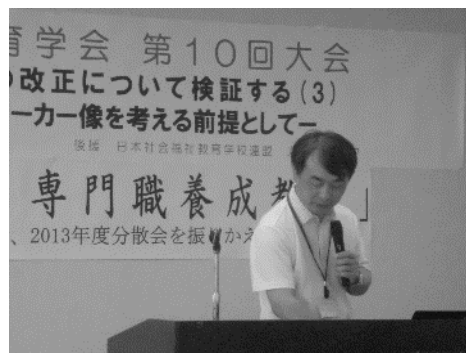 育学会 第10回大会
の改正について検証する(3)
ーカー像を考える前提としてー
後援 日本社会福祉教育学校連盟
専門職養成教 」
、2013年度分散会を振りかえ